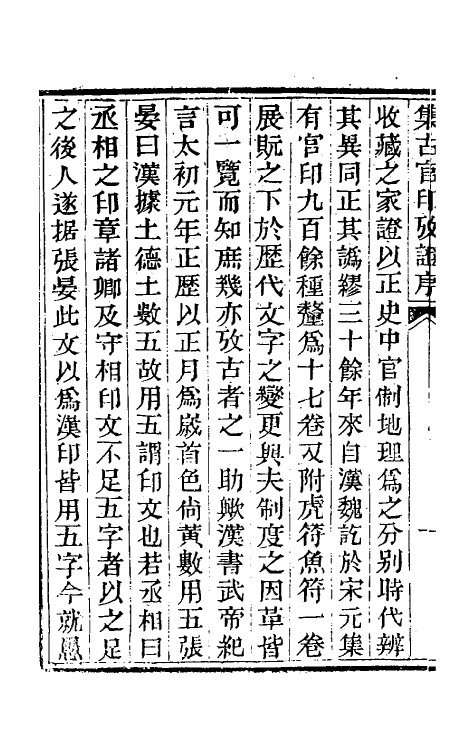 集古官印攷證序
一
收藏之家證以正史中官制地理爲之分别時代辨
其異同正其譌繆三十餘年來自漢魏訖於宋元集
有官印九百餘種釐爲十七卷又附虎符魚符一卷
展翫之下於歷代文字之變更與夫制度之因革皆
可一覽而知庶幾亦攷古者之一助歟漢書武帝紀
言太初元年正歷以正月爲歲首色尙黃數用五張
晏曰漢據土德土數五故用五謂印文也若丞相曰
丞相之印章諸卿及守相印文不足五字者以之足
之後人遂据張晏此文以爲漢印皆用五字今就愚